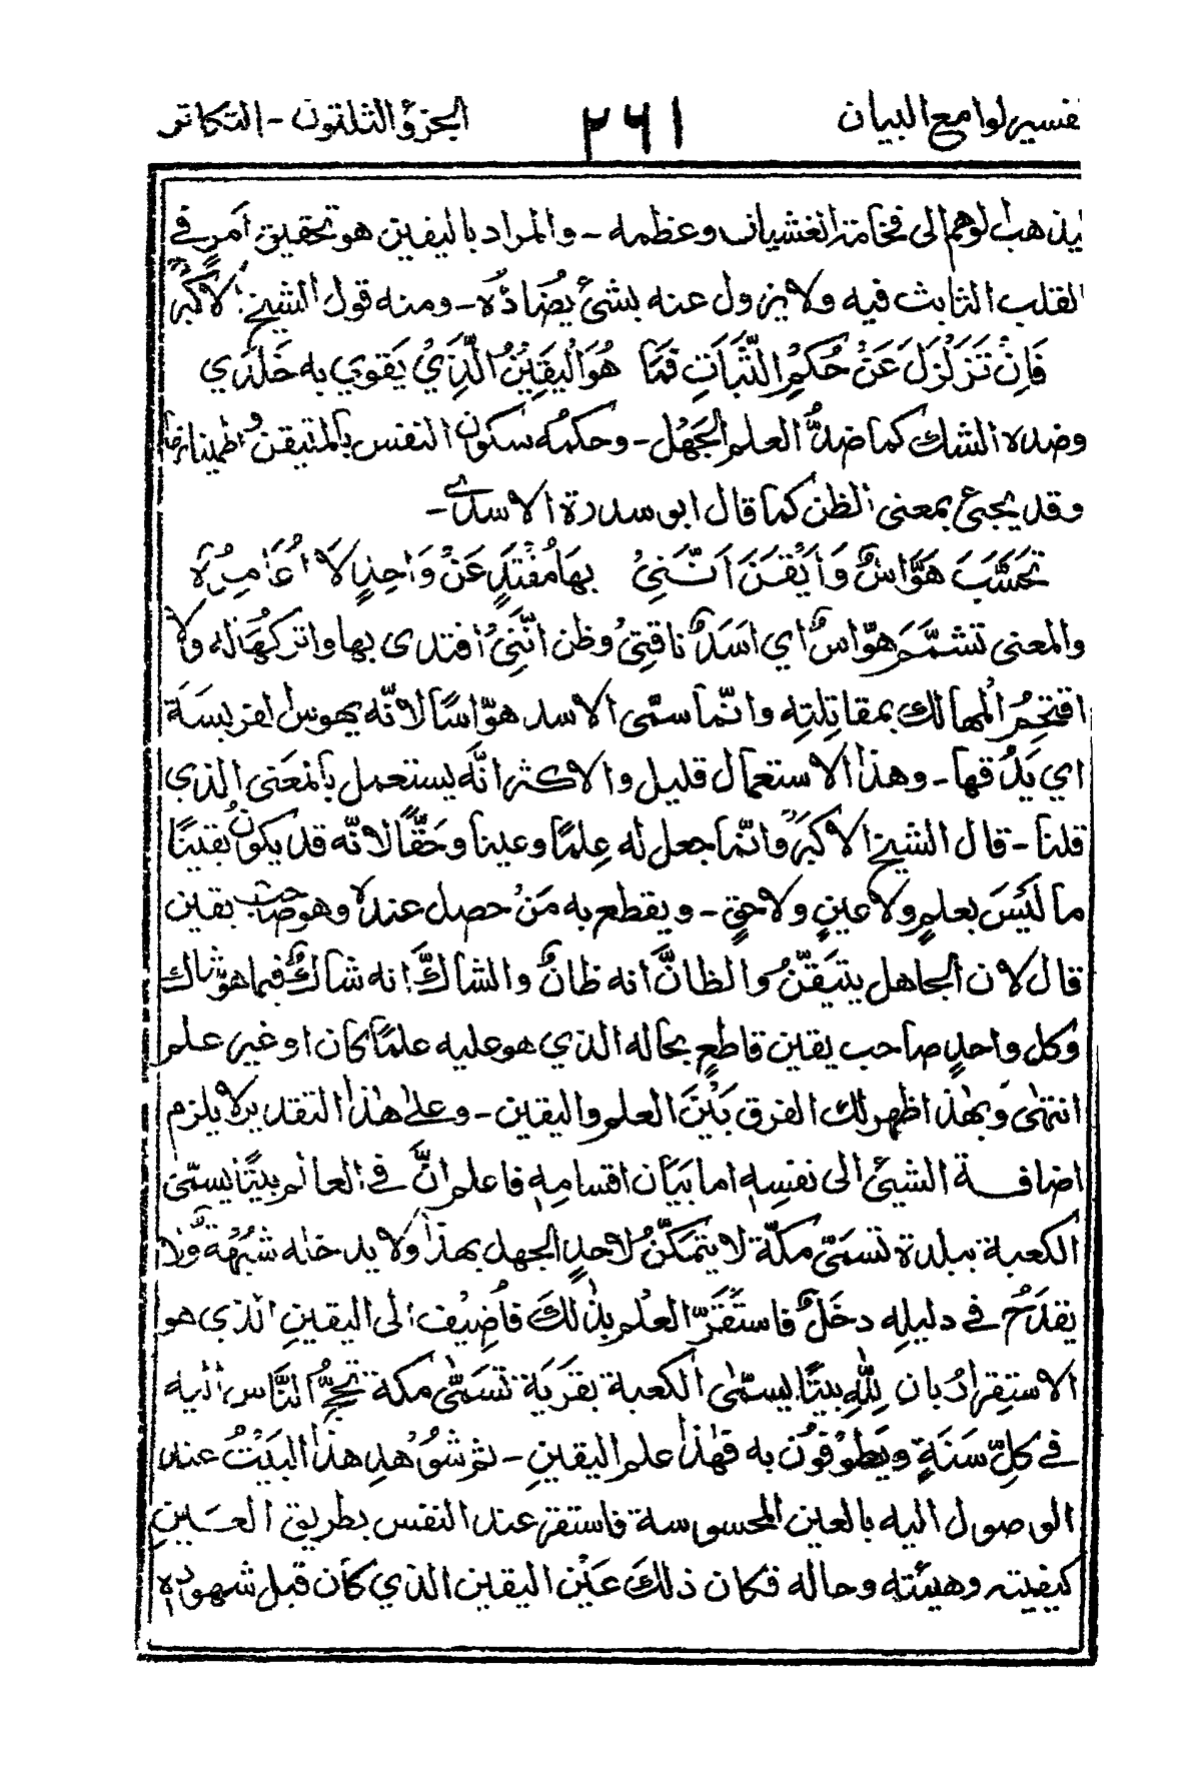 تفسير لوامع البيان ٢٦١ الجزؤ الثلثون - التكاثر
ليذهب الوهم الى فخامة الغشيان وعظمه - والمراد باليقين هو تحقيق أمرٍ في
القلب الثابث فيه ولا يزول عنه بشئ يُضادُّه - ومنه قول الشيخ الاكبرؒ
فَاِنْ تَزَلْزَلَ عَنْ حُكْمِ الثَّبَاتِ فَمَا هُوَ الْيَقِيْنُ الَّذِيْ يَقوي به خَلَدَي
وضده الشك كما ضدُّ العلم الجَهْل - وحكمه سكون النفس بالمتيقن واطمينانها
وقد يجئ بمعنى الظن كما قال ابو سدرة الاسدي -
تَحَسَّبَ هَوَّاسٌ وَأَيْقَنَ اَنَّنِيْ بِهَا مُفْتَدٍ عَنْ وَاحِدٍ لَا اُغَامِرُهْ
والمعنى تشمَّمَ هوّاسٌ اي اَسَدٌ ناقتِيْ وظن انَّنِيْ افتدى بها واتركُهَا له ولا
اقتحِمُ المهالك بمقاتِلتِه وانّما سمّى الاسد هوّاسًا لانّه يهوس الفريسَة
اي يَدُقها - وهذا الاستعمال قليل والاكثر انَّه يستعمل بالمعَنى الذي
قلنا - قال الشيخ الاكبرؒ وانّما جعل له عِلمًا وعينا وحَقًّا لانّه قد يكون يقينًا
ما لَيْسَ بعلمٍ ولا عينٍ ولا حقٍ - ويقطع به مَنْ حصل عنده وهو صاحب يقين
قال لان الجاهل يتيَقّنُ والظانَّ انه ظانٌ والشاكَّ انه شاكٌ فيما هو شاك
وكل واحدٍ صاحب يقين قاطعٍ بحاله الذي هو عليه علمًا كان او غير علم
انتهى وبهذا ظهر لك الفرق بَيْنَ العلم واليقين - وعلى هذا التقدير لا يلزم
اضافة الشيئ الى نفسِه اما بَيَان اقسامِه فاعلم انَّ في العالم بيتًا يسمّى
الكعبة ببلدة تسمّى مكّة لا يتمكّنُ لاحدٍ الجهل بهذا ولا يدخله شُبْهَةٌ ولا
يقدَحُ في دليلِه دخَلٌ فاستَقَرَّ العلم بذلكَ فاُضِيْف الى اليقينِ الذي هو
الاستِقرارُ بان لِلّٰهِ بيتًا يسمّى الكعبة بقَريَة تسَمّى مكة تحجُّ النَّاس اليه
في كلِّ سَنَةٍ ويَطوْفُوْن به فهٰذا علم اليقينِ - ثم شُوْهِد هذا البَيْتُ عند
الوصول اليه بالعين المحسوسة فاستقر عند النفس بطريق العَيْنِ
كيفيته وهيئته وحاله فكان ذلكَ عَيْن اليقين الذي كان قبل شهوده